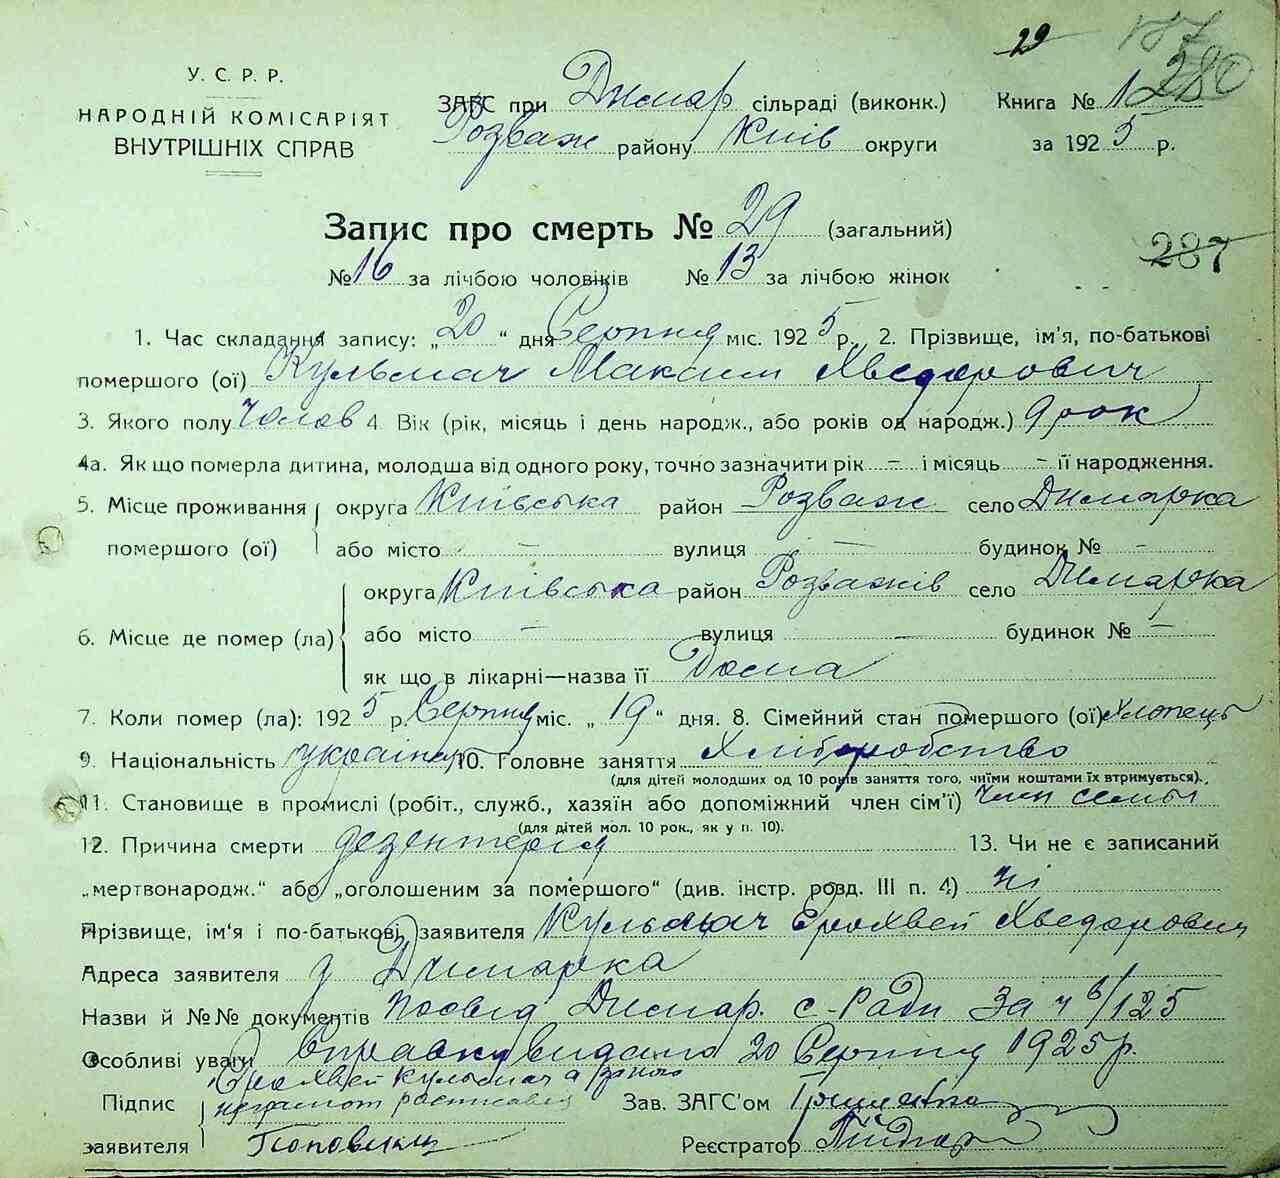 29 187
280
У. С. Р. Р.
НАРОДНІЙ КОМІСАРІЯТ
ВНУТРІШНІХ СПРАВ
ЗАГС при Димар сільраді (виконк.) Книга № 1
Розваж району Київ округи за 1925 р.
Запис про смерть № 29 (загальний)
287
№ 16 за лічбою чоловіків № 13 за лічбою жінок
1. Час складання запису: „20“ дня Серпня міс. 1925 р. 2. Прізвище, ім'я, по-батькові
помершого (ої) Кульмач Максим Хведорович
3. Якого полу Чолов 4. Вік (рік, місяць і день народж., або років од народж.) 9 рок
4а. Як що померла дитина, молодша від одного року, точно зазначити рік – і місяць – її народження.
5. Місце проживання округа Київська район Розваж село Димарка
помершого (ої) або місто – вулиця – будинок № –
округа Київська район Розважів село Димарка
6. Місце де помер (ла) або місто – вулиця – будинок № –
як що в лікарні—назва її Дома
7. Коли помер (ла): 1925 р. Серпня міс. „19“ дня. 8. Сімейний стан помершого (ої) Хлопець
9. Національність українец 10. Головне заняття Хліборобство
(для дітей молодших од 10 років заняття того, чиїми коштами їх втримується).
11. Становище в промислі (робіт., служб., хазяїн або допоміжний член сім'ї) Член семьї
(для дітей мол. 10 рок., як у п. 10).
12. Причина смерти дезентерія 13. Чи не є записаний
„мертвонародж.“ або „оголошеним за помершого“ (див. інстр. розд. III п. 4) ні
Прізвище, ім'я і по-батькові заявителя Кульмач Ерохвей Хведорович
Адреса заявителя Димарка
Назви й №№ документів посвід Димар. с-Ради За ч 6/125
Особливі уваги Справку видано 20 Серпня 1925 р.
Ерохвей Кульмач а за него
Підпис неграмот расписався Зав. ЗАГС'ом
заявителя Реєстратор